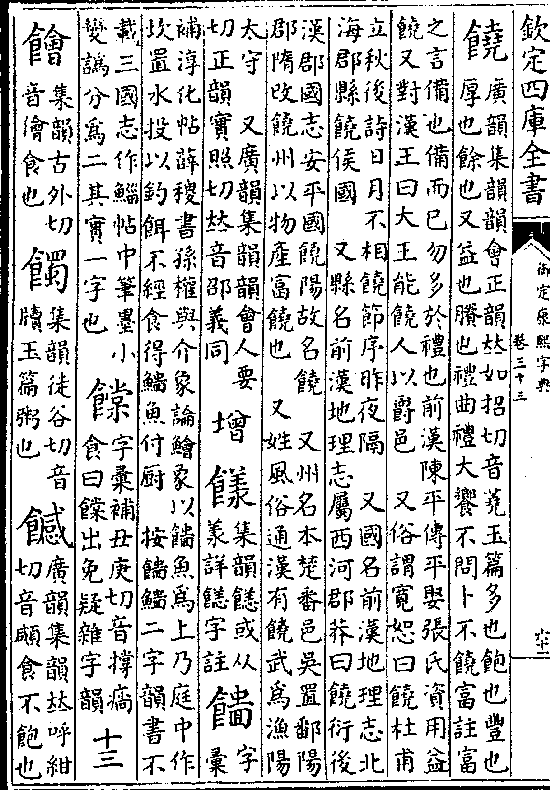 欽定四庫全書
御定康熙字典
卷三十三
六十二
饒廣韻集韻韻會正韻𠀤如招切音蕘玉篇多也飽也豐也
厚也餘也又益也賸也禮曲禮大饗不問卜不饒富註富
之言備也備而已勿多於禮也前漢陳平傳平娶張氏資用益
饒又對漢王曰大王能饒人以爵邑　又俗謂寛恕曰饒杜甫
立秋後詩日月不相饒節序昨夜隔　又國名前漢地理志北
海郡縣饒侯國　又縣名前漢地理志屬西河郡莽曰饒衍後
漢郡國志安平國饒陽故名饒　又州名本楚番邑吳置鄱陽
郡隋改饒州以物產富饒也　又姓風俗通漢有饒武爲漁陽
太守　又廣韻集韻韻會人要
切正韻實照切𠀤音邵義同
增
䭥集韻䭒或从
義詳䭒字註
䭆字彙
補淳化帖薛稷書孫權與介象論鱠象以䭆魚爲上乃庭中作
坎置水投以釣餌不經食得鯔魚付厨　按䭆鯔二字韻書不
載三國志作鯔帖中筆畧小
變譌分爲二其實一字也
饓字彙補丑庚切音撑㾃
食曰饓出免疑雜字韻
十三
䭝集韻古外切
音儈食也
䭚集韻徒谷切音
牘玉篇粥也
㔶廣韻集韻𠀤呼紺
切音顑食不飽也